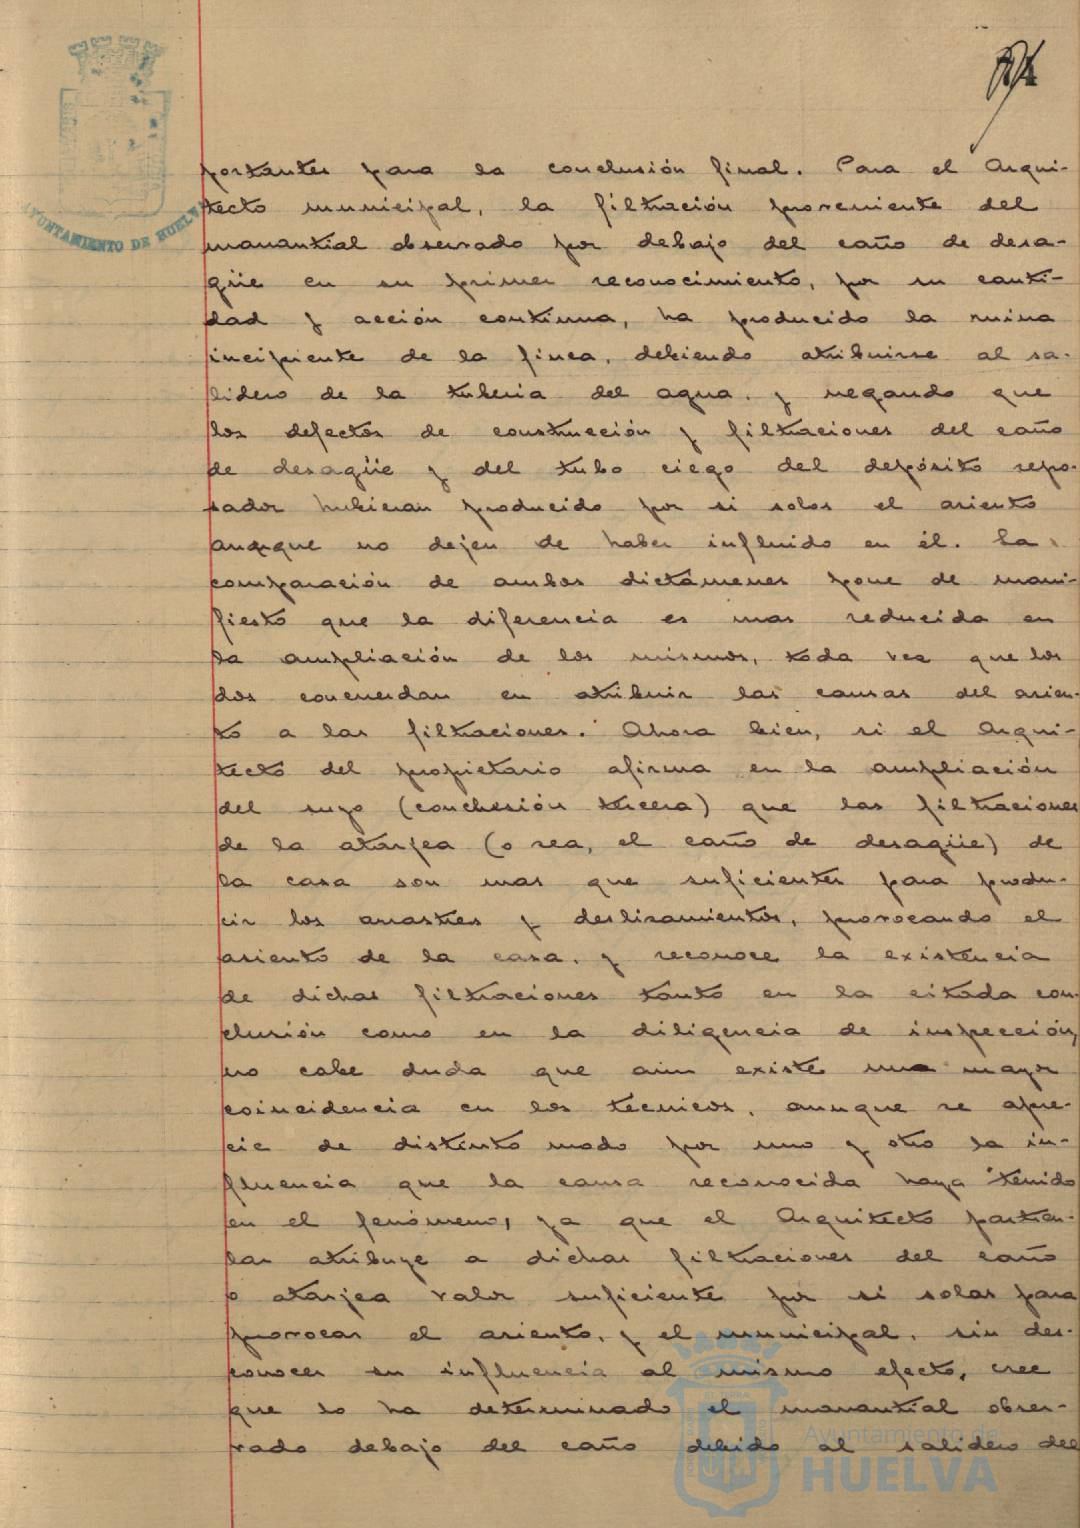 AYUNTAMIENTO DE HUELVA
portantes para la conclusión final. Para el Arqui-
tecto municipal, la filtración proveniente del
manantial observado por debajo del caño de desa-
güe en su primer reconocimiento, por su canti-
dad y acción continua, ha producido la ruina
incipiente de la finca, debiendo atribuirse al sa-
lidero de la tuberia del agua, y negando que
los defectos de construcción y filtraciones del caño
de desagüe y del tubo ciego del depósito repo-
sador hubieran producido por si solos el asiento
aunque no dejen de haber influido en él. La
comparación de ambos dictámenes pone de mani-
fiesto que la diferencia es mas reducida en
la ampliación de los mismos, toda vez que los
dos concuerdan en atribuir las causas del asien-
to a las filtraciones. Ahora bien, si el Arqui-
tecto del propietario afirma en la ampliación
del suyo (conclusión tercera) que las filtraciones
de la atarjea (o sea, el caño de desagüe) de
la casa son mas que suficientes para produ-
cir los arrastres y deslizamientos, provocando el
asiento de la casa, y reconoce la existencia
de dichas filtraciones tanto en la citada con-
clusión como en la diligencia de inspección,
no cabe duda que aun existe una mayor
coincidencia en los tecnicos, aunque se apre-
cie de distinto modo por uno y otro la in-
fluencia que la causa reconocida haya tenido
en el fenómeno, ya que el Arquitecto particu-
lar atribuye a dichas filtraciones del caño
o atarjea valor suficiente por si solas para
provocar el asiento, y el municipal, sin des-
conocer su influencia al mismo efecto, cree
que lo ha determinado el manantial obser-
vado debajo del caño debido al salidero del
Ayuntamiento de
HUELVA